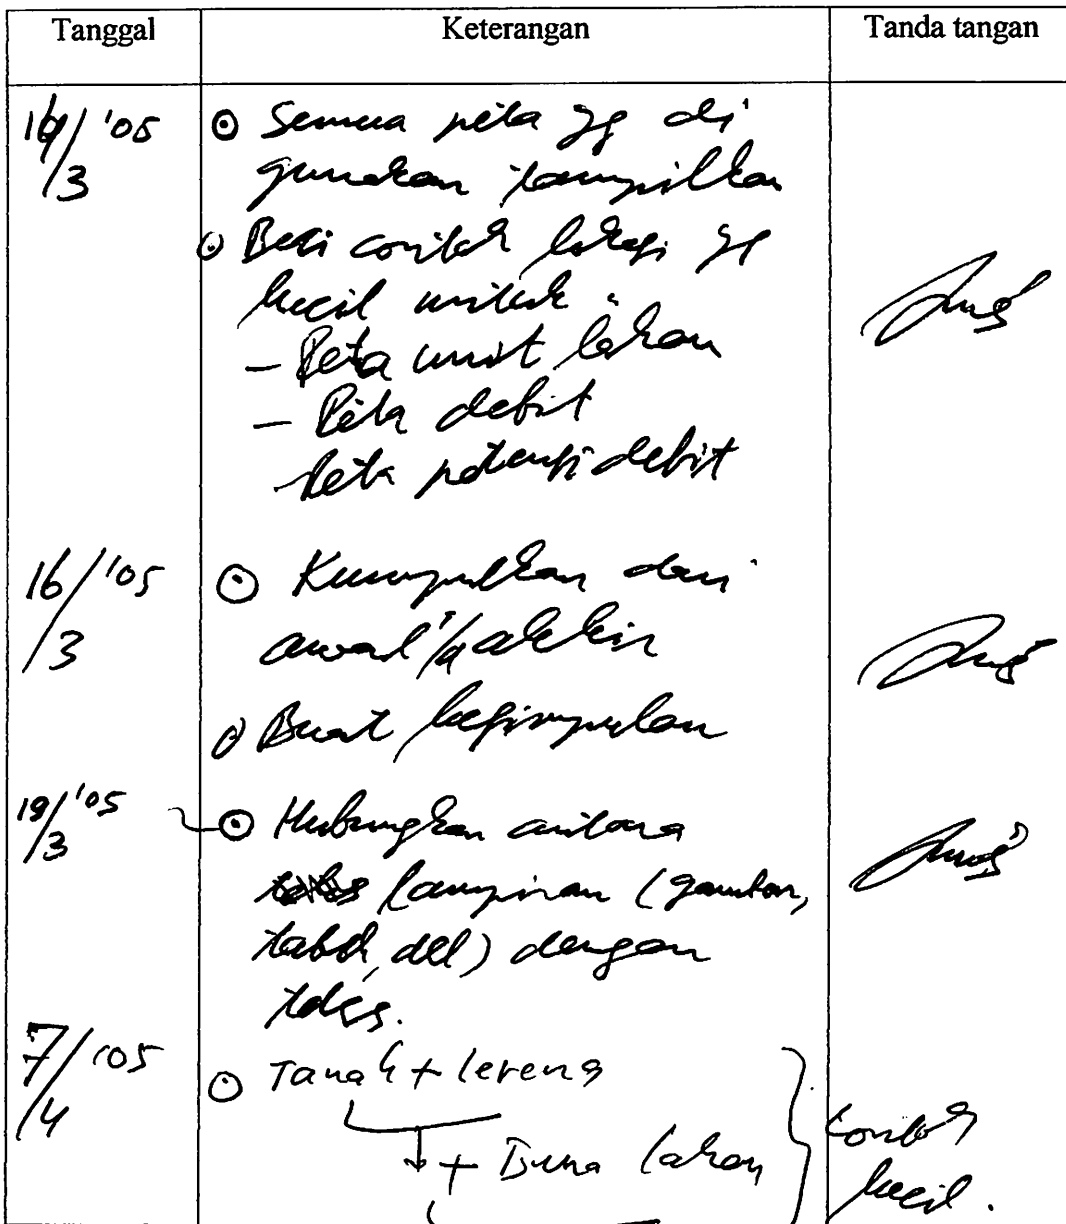 Tanggal Keterangan Tanda tangan
/3 '05 ⊙ Semua peta yg di
gunakan tampilkan
⊙ Beri contoh lokasi yg
kecil untuk :
- Peta unit lahan
- Peta debit
- Peta potensi debit
16/3 '05 ⊙ Kumpulkan dari
awal akhir
⊙ Buat kesimpulan
/3 '05 ⊙ Hubungkan antara
lampiran (gambar,
tabel, dll) dengan
teks.
7/4 '05 ⊙ Tanah + lereng
+ Guna lahan contoh
kecil.